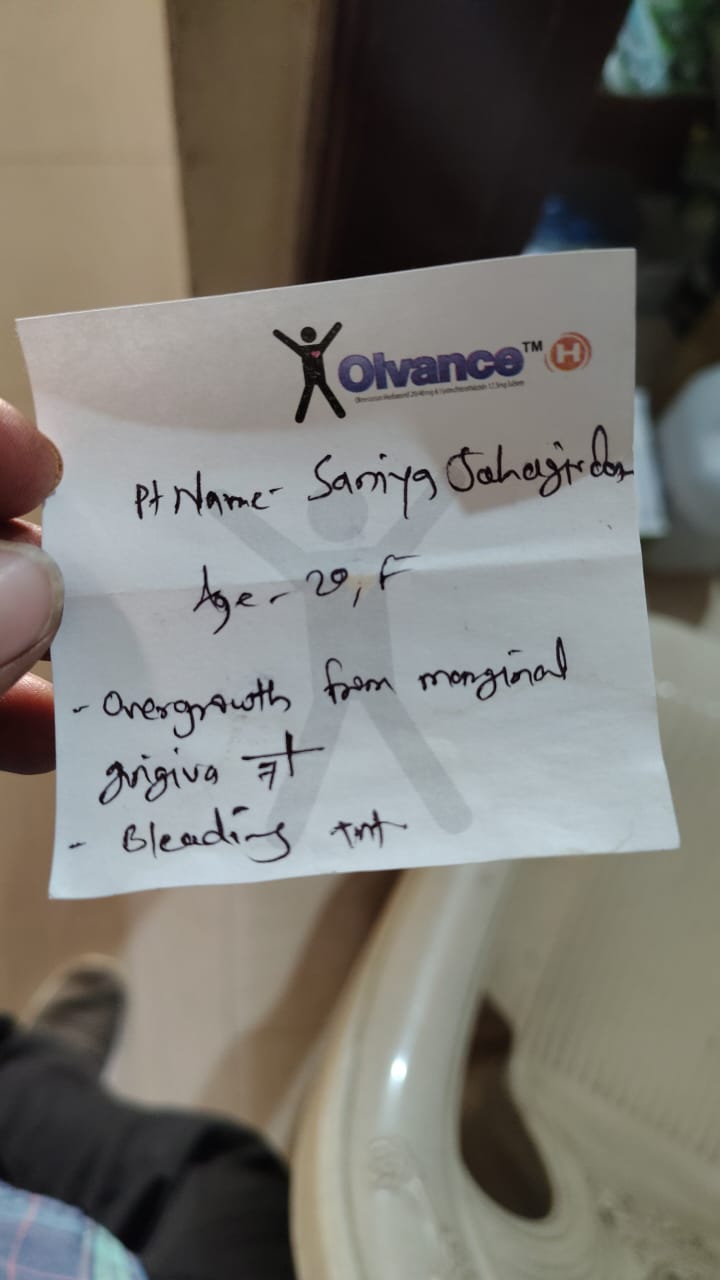 Olvance™ H
Olmesartan Medoxomil 20/40mg & Hydrochlorothiazide 12.5mg Tablets
Pt Name- Saniya Jahagirdar
Age - 20, F
- Overgrowth from marginal
gingiva 7
- Bleeding +nt